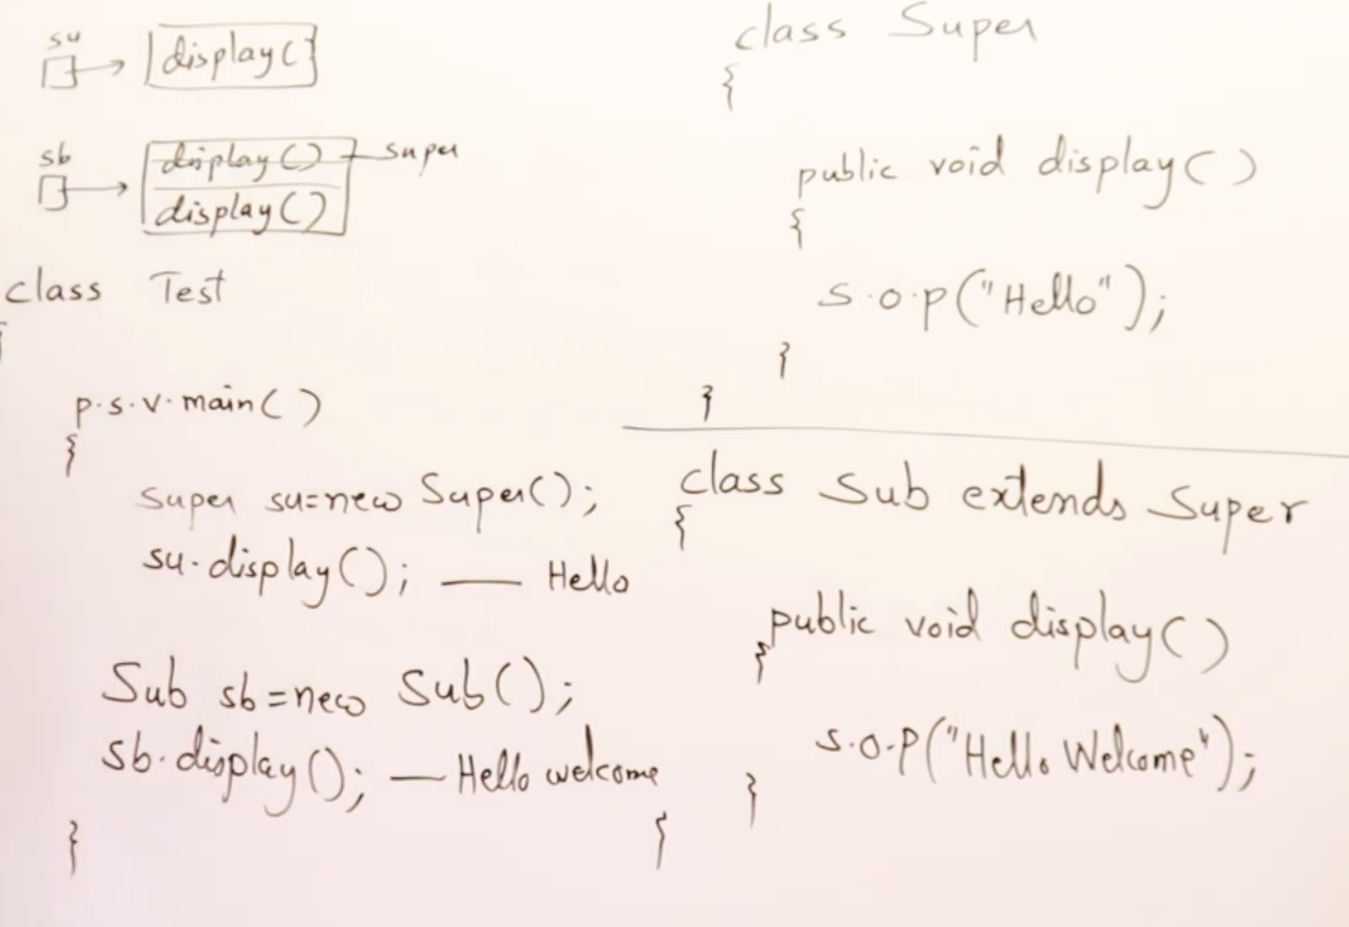 su
display()
sb
display() super
display()
class Test
{
p.s.v.main()
{
Super su=new Super();
su.display(); — Hello
Sub sb=new Sub();
sb.display(); — Hello welcome
}
class Super
{
public void display()
{
s.o.p("Hello");
}
}
class Sub extends Super
{
public void display()
{
s.o.p("Hello Welcome");
}
}